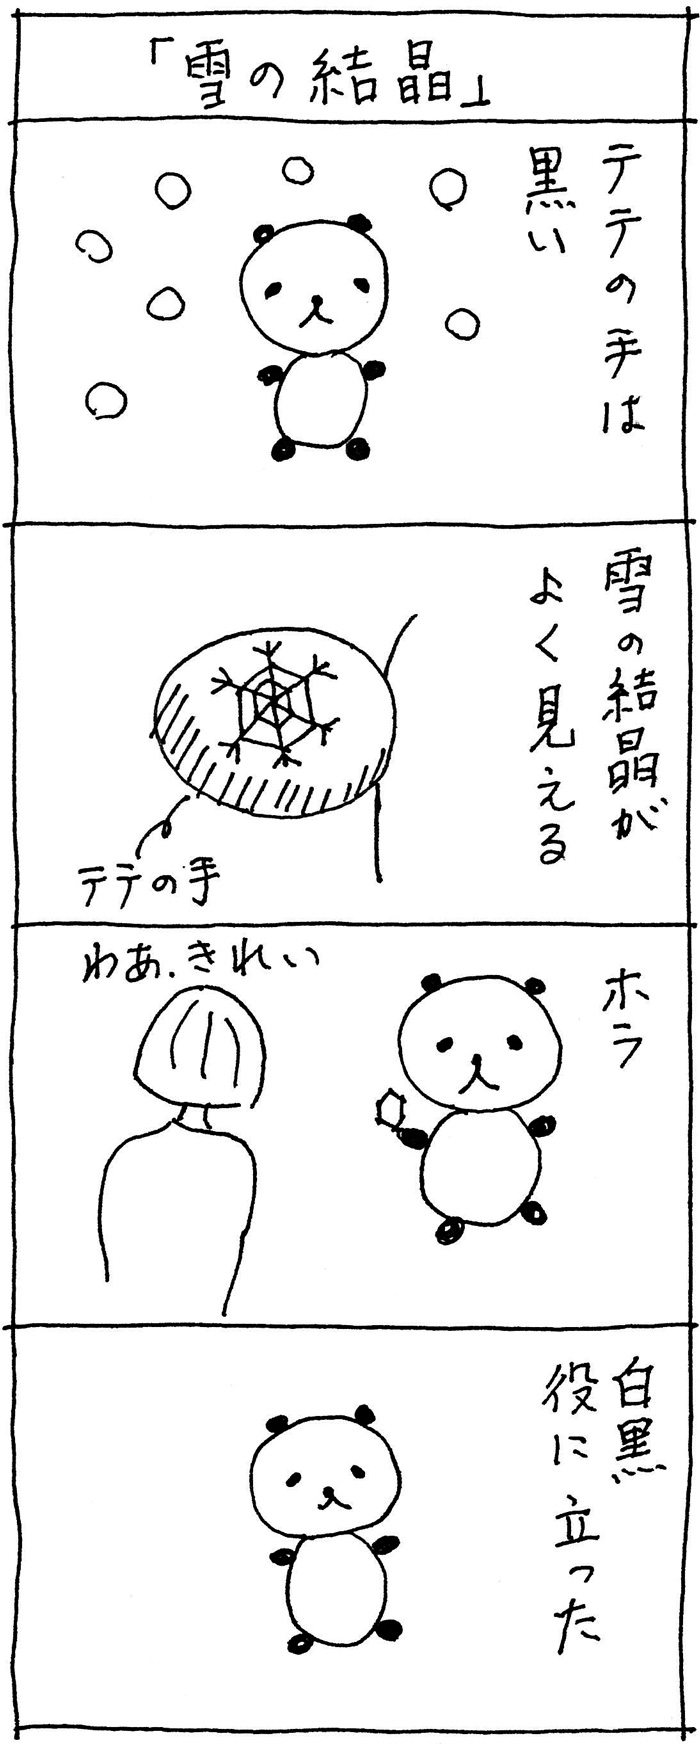 「雪の結晶」
テテの手は
黒い
雪の結晶が
よく見える
テテの手
ホラ
わあ、きれい
白黒
役に立った